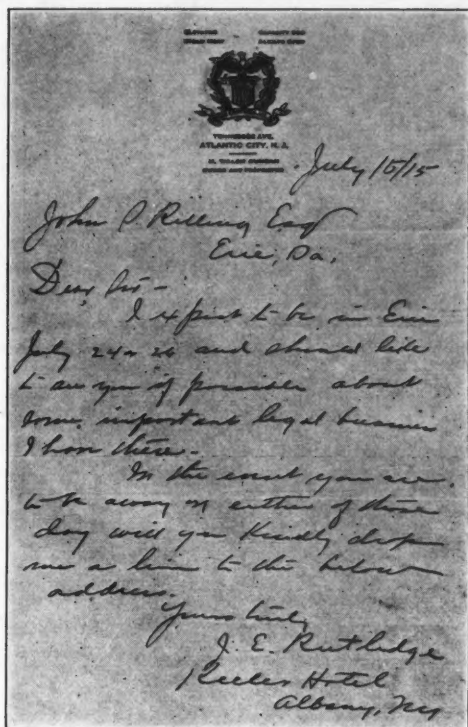 TENNESSEE AVE.
ATLANTIC CITY, N. J.
July 15/15
John P. Rilling Esq
Erie, Pa.
Dear Sir -
I expect to be in Erie
July 24 or 26 and should like
to see you if possible about
some important legal business
I have there.
In the event you are
to be away on either of those
day will you kindly drop
me a line to the below
address.
Yours truly
J. E. Rutledge
Keeler Hotel
Albany, NY